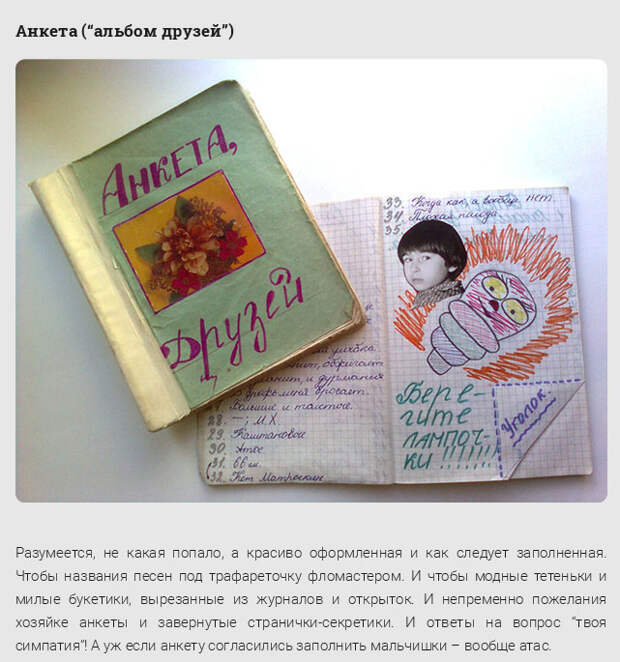 Анкета (“альбом друзей”)
АНКЕТА,
ДРУЗЕЙ
33. Когда как, а вообще нет.
34. Плохая погода.
35.
БЕРЕ-
ГИТЕ
ЛАМПОЧ-
КИ !!!!!!!
Уголок
улыбка.
и дурманит
бросает.
Большие и толстое.
28. — ; М.Х.
29. Каштановое
30.
31. 66
32. Кот Матроскин.
Разумеется, не какая попало, а красиво оформленная и как следует заполненная.
Чтобы названия песен под трафареточку фломастером. И чтобы модные тетеньки и
милые букетики, вырезанные из журналов и открыток. И непременно пожелания
хозяйке анкеты и завернутые странички-секретики. И ответы на вопрос “твоя
симпатия”! А уж если анкету согласились заполнить мальчишки – вообще атас.